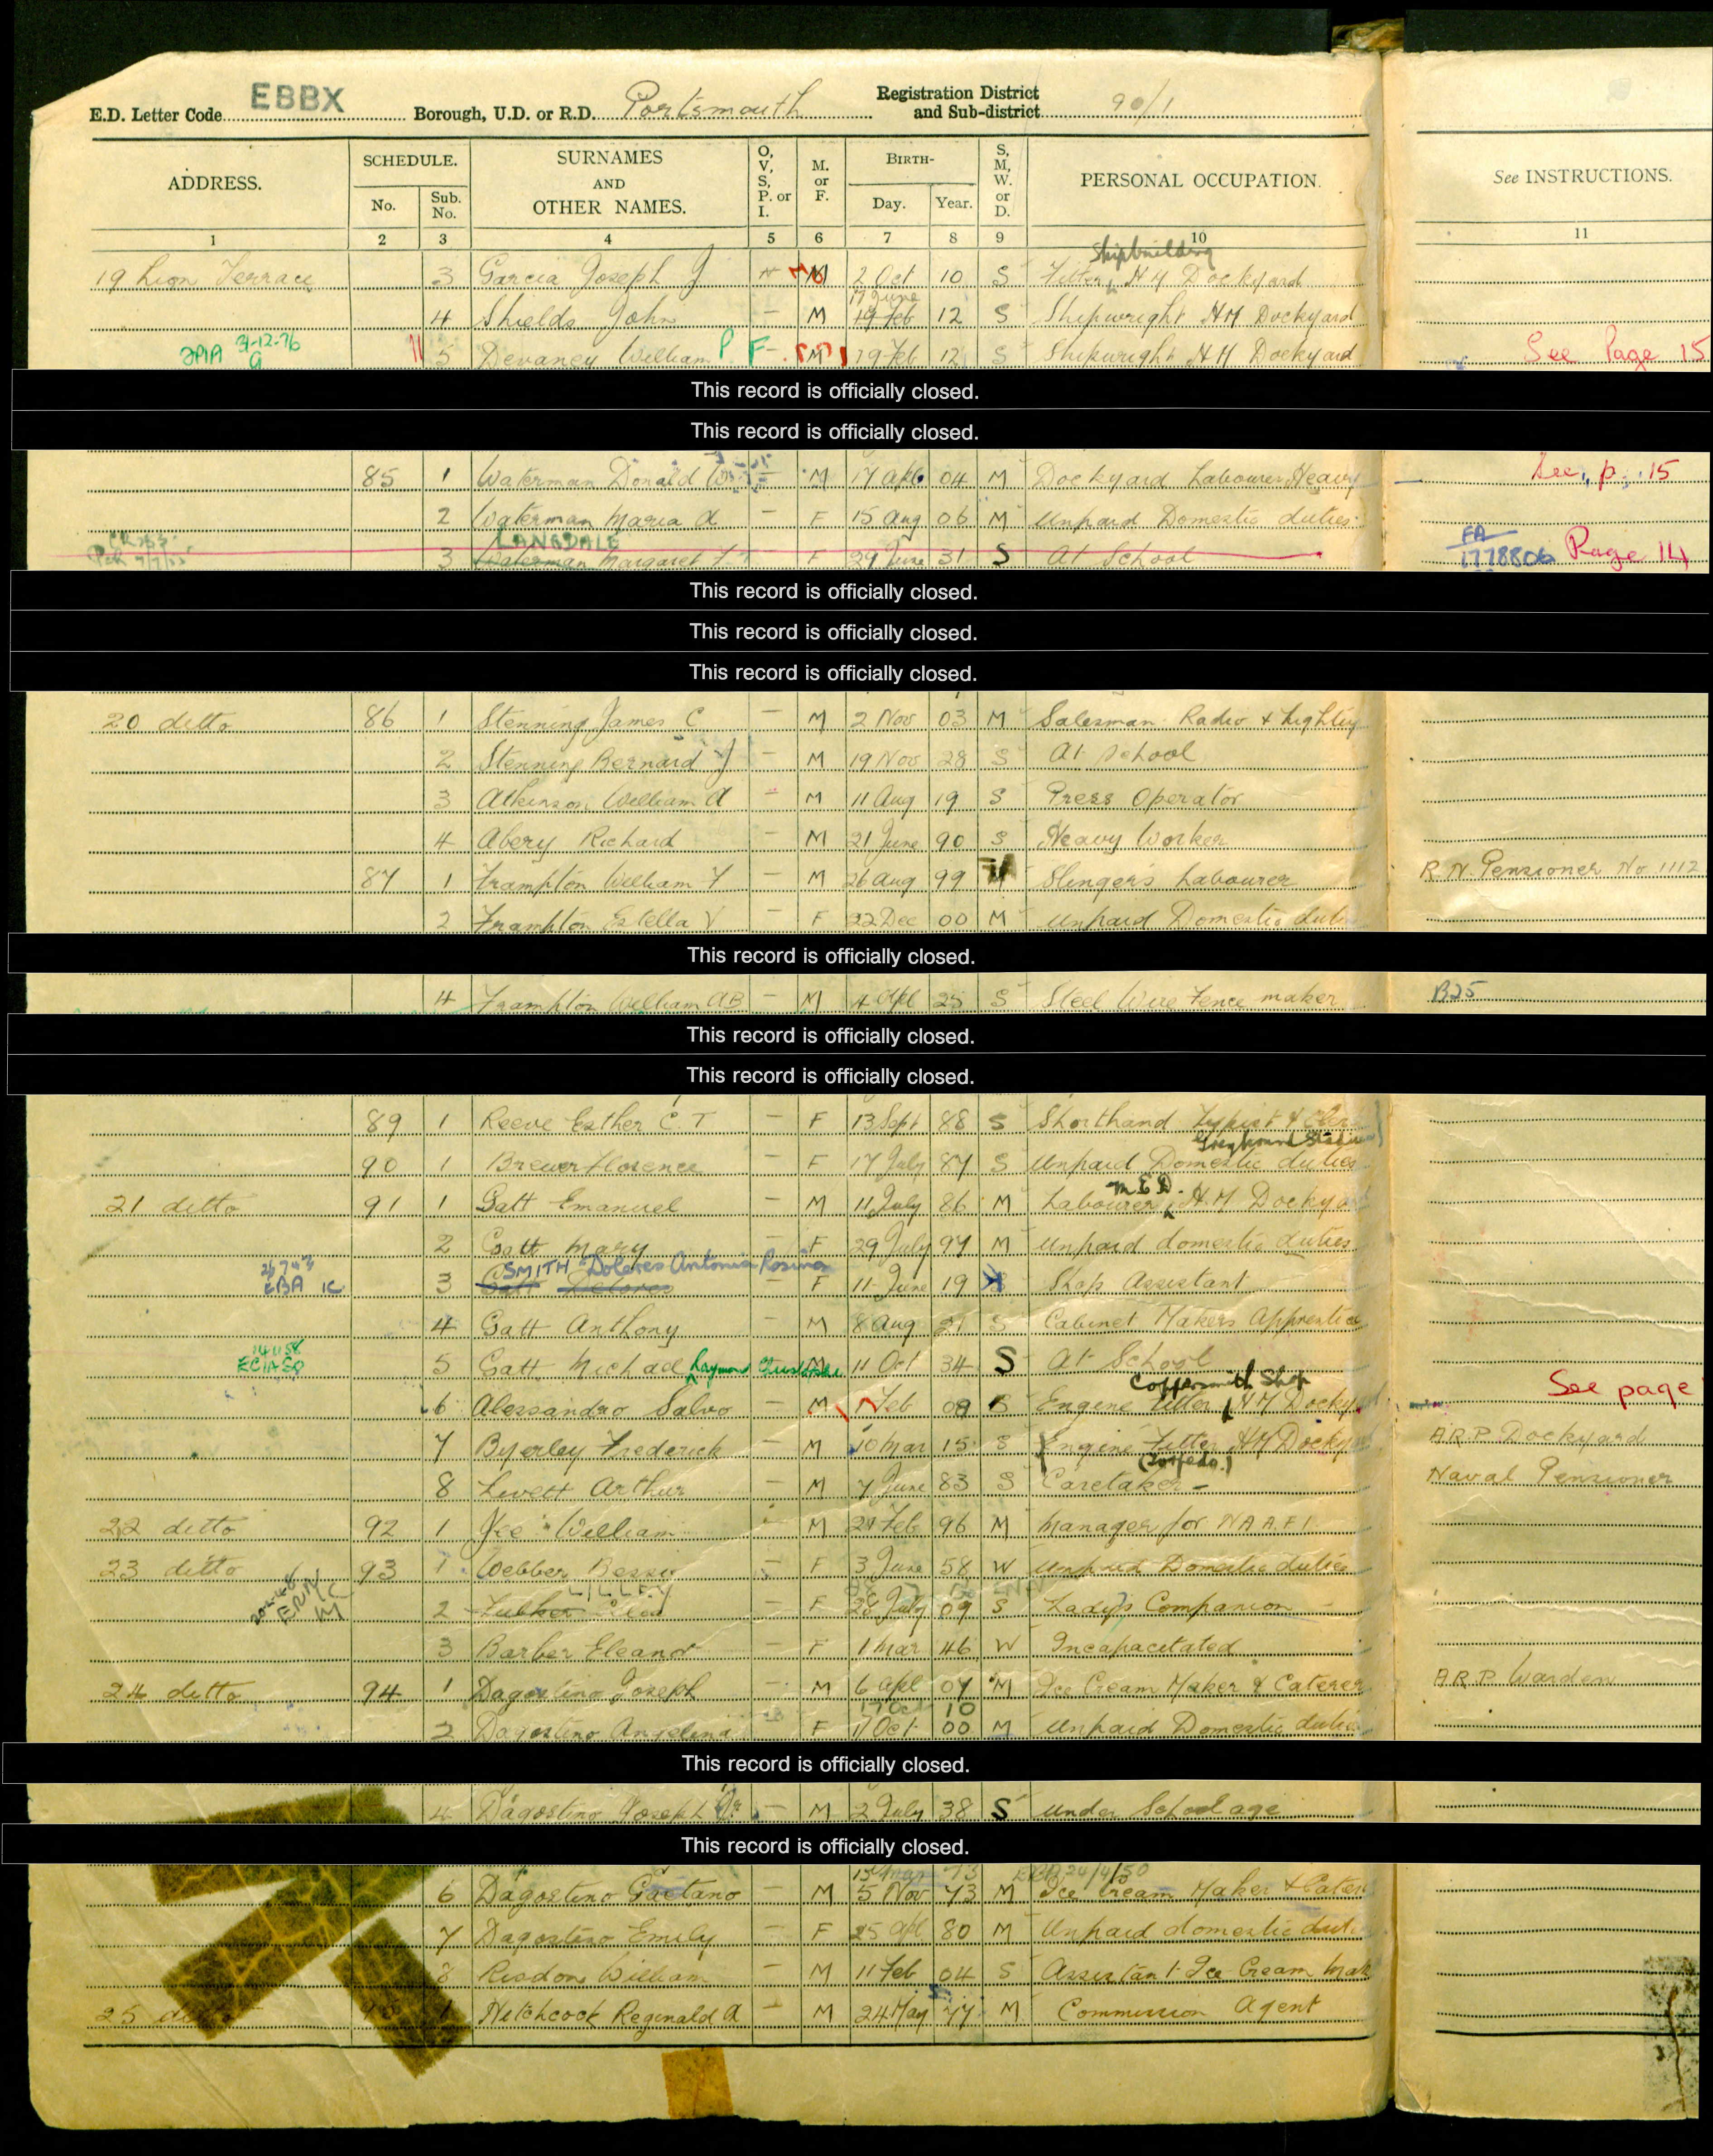 E.D. Letter Code EBBX Borough, U.D. or R.D. Portsmouth Registration District and Sub-district 90/1
ADDRESS. SCHEDULE. No. Sub. No. SURNAMES AND OTHER NAMES. O, V, S, P. or I. M. or F. BIRTH- Day. Year. S, M, W. or D. PERSONAL OCCUPATION. See INSTRUCTIONS.
1 2 3 4 5 6 7 8 9 10 11
Shipbuilding
19 Lion Terrace 3 Garcia Joseph J M 2 Oct 10 S Fitter, HM Dockyard
17 June
4 Shields John — M 19 Feb 12 S Shipwright HM Dockyard
31-12-76 5 Devaney William P F — M 19 Feb 12 S Shipwright HM Dockyard See Page 15
This record is officially closed.
This record is officially closed.
85 1 Waterman Donald W — M 17 Apl 04 M Dockyard Labourer Heavy See p. 15
2 Waterman Maria A — F 15 Aug 06 M Unpaid Domestic duties
LANGDALE
3 Waterman Margaret F 29 June 31 S At School FA 1778806 Page 14
This record is officially closed.
This record is officially closed.
This record is officially closed.
20 ditto 86 1 Stenning James C — M 2 Nov 03 M Salesman Radio & Lighting
2 Stenning Bernard J — M 19 Nov 28 S At School
3 Atkinson William A — M 11 Aug 19 S Press Operator
4 Abery Richard — M 21 June 90 S Heavy Worker
87 1 Frampton William F — M 26 Aug 99 M Slinger's Labourer R.N. Pensioner No 1112
2 Frampton Estella V — F 22 Dec 00 M Unpaid Domestic duti
This record is officially closed.
4 Frampton William AB — M 4 Apl 25 S Steel Wire Fence maker B25
This record is officially closed.
This record is officially closed.
89 1 Reeve Esther C. T — F 13 Sept 88 S Shorthand Typist & Cler
Greyhound Stadium
90 1 Brewer Florence — F 17 July 87 S Unpaid Domestic duties
M.E.D.
21 ditto 91 1 Gatt Emanuel — M 11 July 86 M Labourer HM Dockya
2 Gatt Mary — F 29 July 97 M Unpaid domestic duties
SMITH Dolores Antonia Rosina
3 Gatt Delores F 11 June 19 S Shop Assistant
4 Gatt Anthony — M 8 Aug 21 S Cabinet Makers Apprentice
5 Gatt Michael Raymond M 11 Oct 34 S At School
Coppersmith Shop See page
6 Alessandro Salvo — M Feb 09 S Engine Fitter HM Docky
7 Byerley Frederick — M 10 Mar 15 S Engine Fitter HM Docky A.R.P. Dockyard
(Torpedo.)
8 Livett Arthur — M 7 June 83 S Caretaker — Naval Pensioner
22 ditto 92 1 William M 24 Feb 96 M Manager for N.A.A.F.I.
23 ditto 93 1 Webber Bessy — F 3 June 58 W Unpaid Domestic duties
LILLEY
2 — F 28 July 09 S Lady's Companion
3 Barber Eleanor — F 1 Mar 46 W Incapacitated
24 ditto 94 1 Dagostino Joseph — M 6 Apl 07 M Ice Cream Maker & Caterer A.R.P. Warden
17 Oct 10
2 Dagostino Angelina F 17 Oct 00 M Unpaid Domestic dutie
This record is officially closed.
4 Dagostino Joseph Jr — M 2 July 38 S Under School age
This record is officially closed.
24/4/50
6 Dagostino Gaetano — M 5 Nov 73 M Ice Cream Maker & Cater
7 Dagostino Emily — F 25 Apl 80 M Unpaid domestic dut
8 Risdon William — M 11 Feb 04 S Assistant Ice Cream Mak
25 ditto 1 Hitchcock Reginald A — M 24 May 77 M Commission Agent